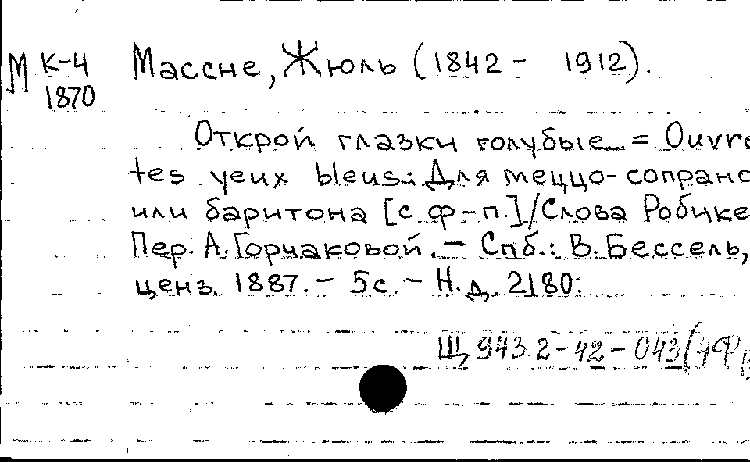 М К-4
1870
Массне, Жюль (1842 - 1912).
Открой глазки голубые = Ouvre
tes yeux bleus: Для меццо-сопрано
или баритона [с ф-п.]/Слова Робике
Пер. А. Горчаковой. - Спб.: В. Бессель,
ценз. 1887. - 5с. - Н.д. 2180.
Щ 943.2-42-043